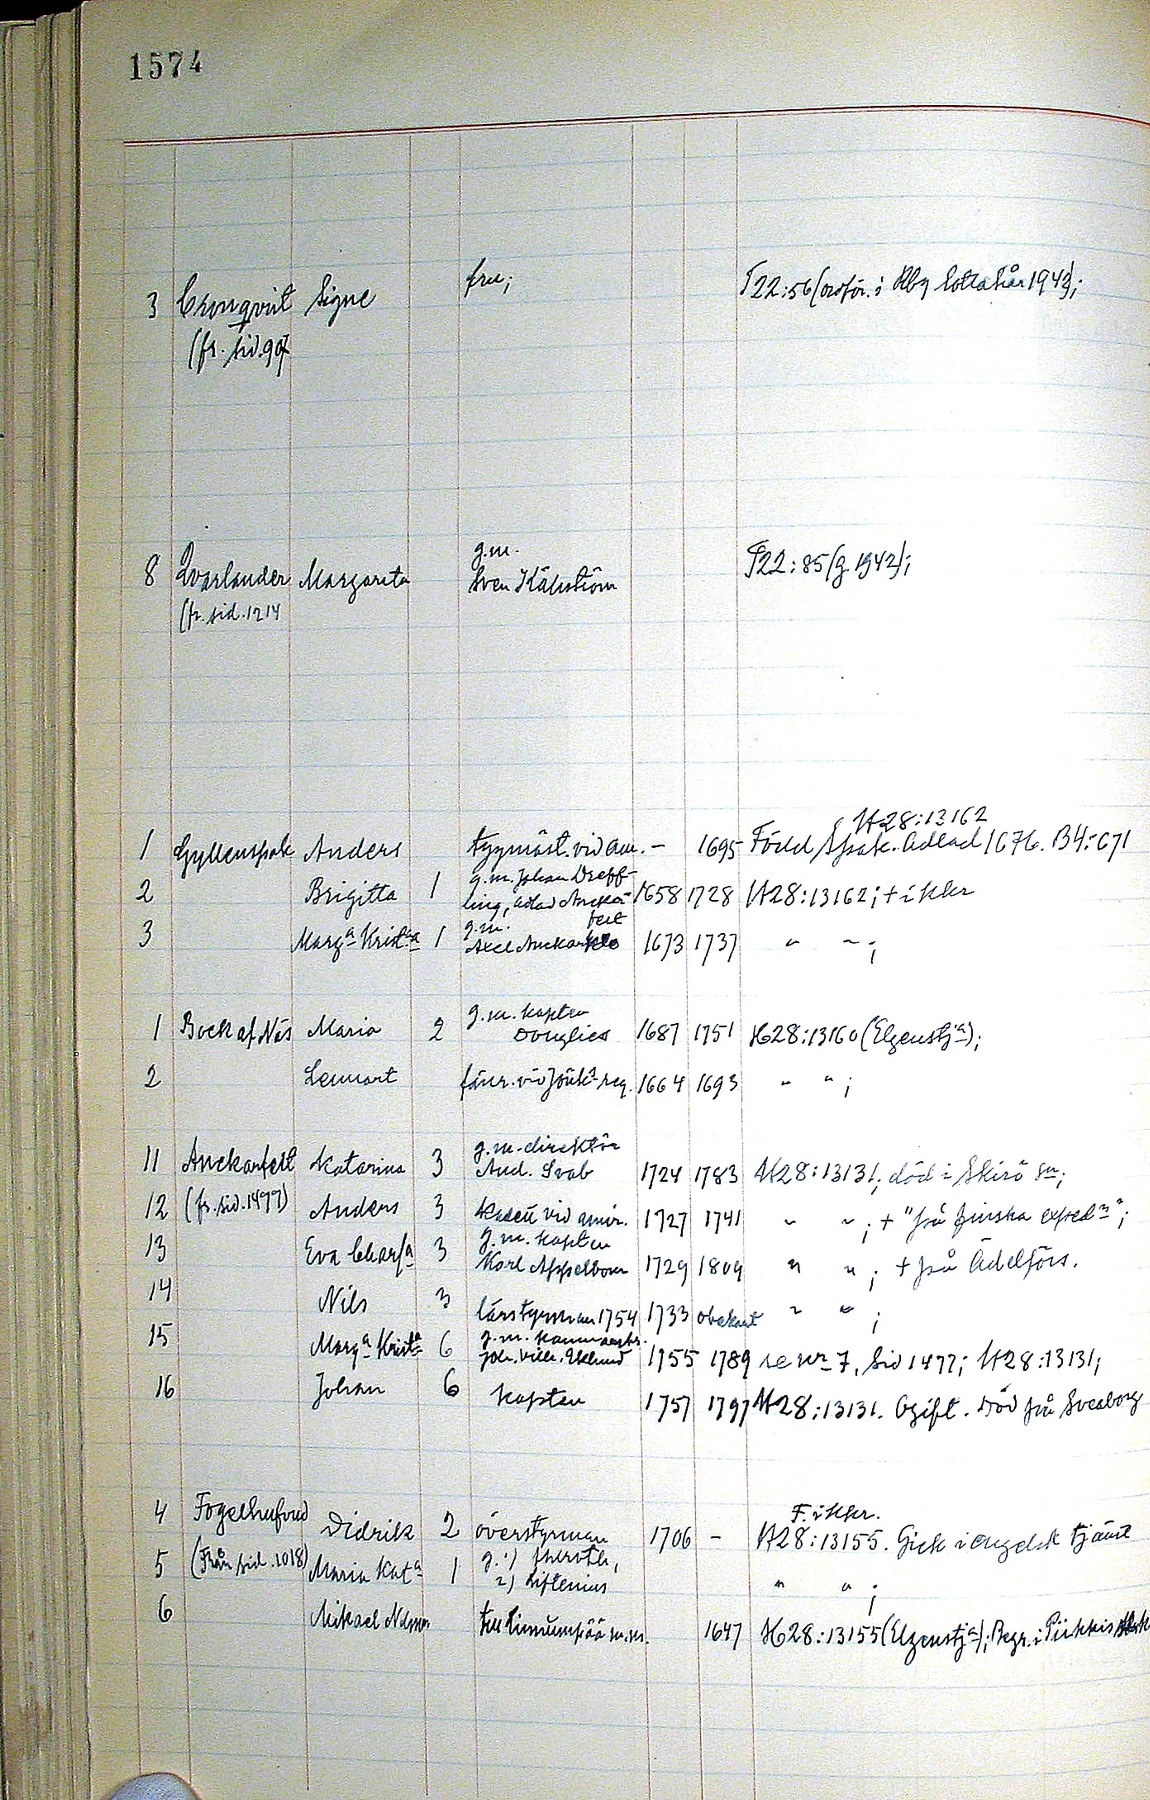 1574
3 Cronqvist Signe fru; T22:56 (ordför. i Rbg Lottakår 1943);
(fr. sid. 907
g.m.
8 Qvarlander Margareta Sven Källström T22:85 (g. 1942);
(fr. sid. 1214
H28:13162
1 Gyllenspak Anders tygmäst. vid am. - 1695 Född Spak. Adlad 1676. B4:671
g.m. Johan Dreff-
2 Brigitta 1 ling, adlad Anckar- 1658 1728 H28:13162; + i khr
felt
g.m.
3 Marga Krista 1 Axel Anckar 1673 1737 " ";
g.m. kapten
1 Bock af Näs Maria 2 Douglies 1687 1751 H28:13160 (Elgenstja);
2 Lennart fänr. vid Jönk. reg. 1664 1693 " ";
g.m. direktör
11 Anckarfelt Katarina 3 And. Svab 1724 1783 H28:13131; död i Skirö sn;
12 (fr. sid. 1477) Anders 3 kadett vid amir. 1727 1741 " "; + "på finska expedn";
g.m. kapten
13 Eva Charla 3 Karl Appelbom 1729 1809 " "; + på Ädelfors.
14 Nils 3 lärstyrman 1754 1733 obekant " ";
g.m.
15 Marga Krista 6 Joh. Vilh. Eklund 1755 1789 se nr 7, sid 1477; H28:13131;
16 Johan 6 kapten 1757 1797 H28:13131. Ogift. Död på Sveaborg
F. i khr.
4 Fogelhufvud Didrik 2 överstyrman 1706 - H28:13155. Gick i engelsk tjänst
(Från sid. 1018) g. 1)
5 Maria Kata 1 2) " ";
6 Mikael till 1647 H28:13155 (Elgenstja); Begr. i Piikkis